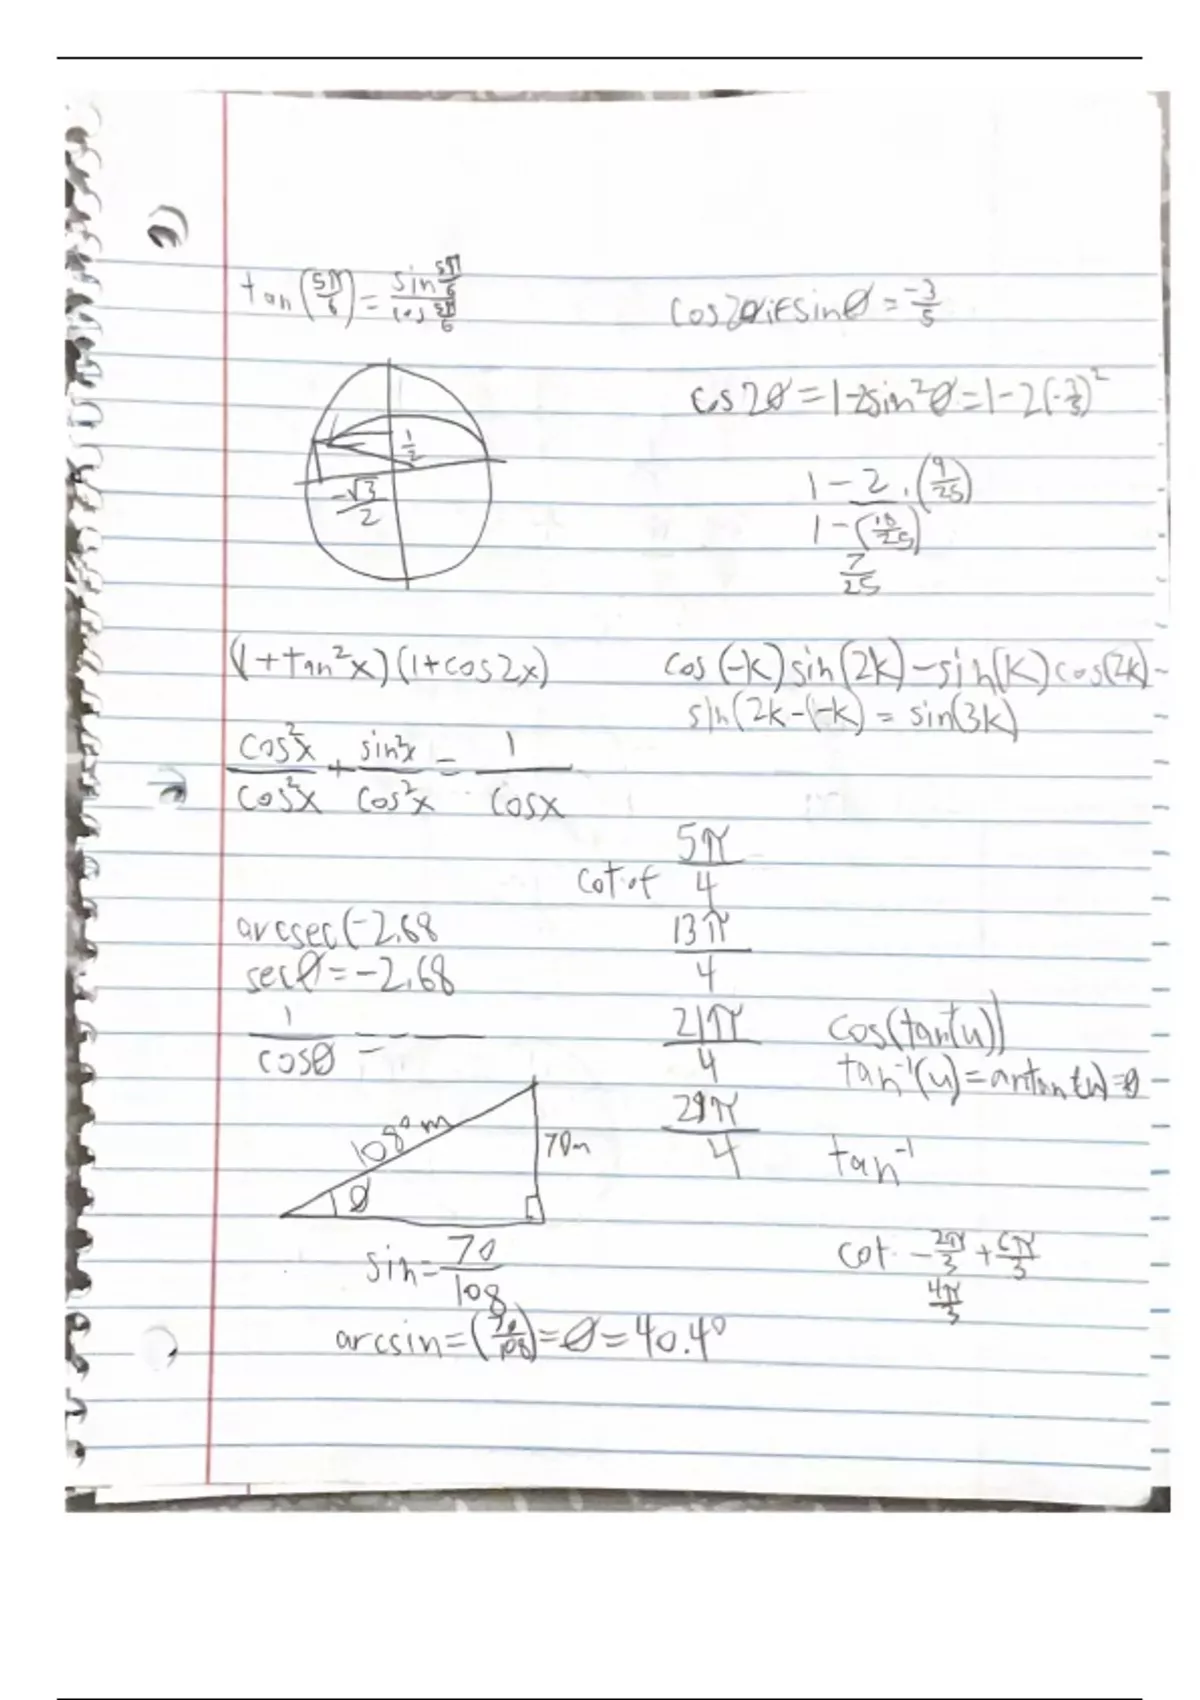 tan (5π/6) = sin 5π/6 / cos 5π/6
1/2
-√3/2
cos2θ if sinθ = -3/5
cos2θ = 1-2sin²θ = 1-2(-3/5)²
1-2·(9/25)
1-(18/25)
7/25
(1+tan²x)(1+cos2x)
cos²x/cos²x + sin²x/cos²x = 1/cosx
cos(-k)sin(2k)-sin(k)cos(2k)-
sin(2k-(-k) = sin(3k)
cot of 5π/4
13π/4
21π/4
29π/4
arcsec(-2.68
secθ=-2.68
1/cosθ = -
108° m
70m
θ
sin = 70/108
arcsin=(70/108)=θ=40.4°
cos(tan⁻¹(u))
tan⁻¹(u)=arctan(u)=θ
tan⁻¹
cot -2π/3 + 6π/3
4π/3